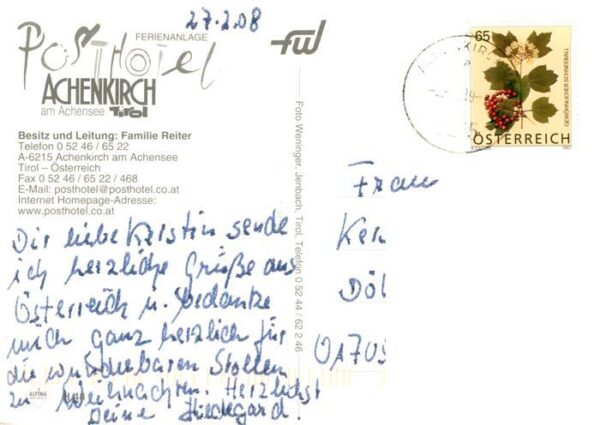 27.2.08
FERIENANLAGE
PostHotel
ACHENKIRCH
am Achensee Tirol
Besitz und Leitung: Familie Reiter
Telefon 0 52 46 / 65 22
A-6215 Achenkirch am Achensee
Tirol – Österreich
Fax 0 52 46 / 65 22 / 468
E-Mail: posthotel@posthotel.co.at
Internet Homepage-Adresse:
www.posthotel.co.at
Dir liebe Kerstin sende
ich herzliche Grüße aus
Österreich u. bedanke
mich ganz herzlich für
die wunderbaren Stollen
zu Weihnachten. Herzlichst
Deine Hildegard.
ALPINA
fwd
Foto Weninger, Jenbach, Tirol, Telefon 0 52 44 / 62 2 46
65
GEWÖHNLICHER SCHNEEBALL
ÖSTERREICH
Frau
Ker
Döl
01705